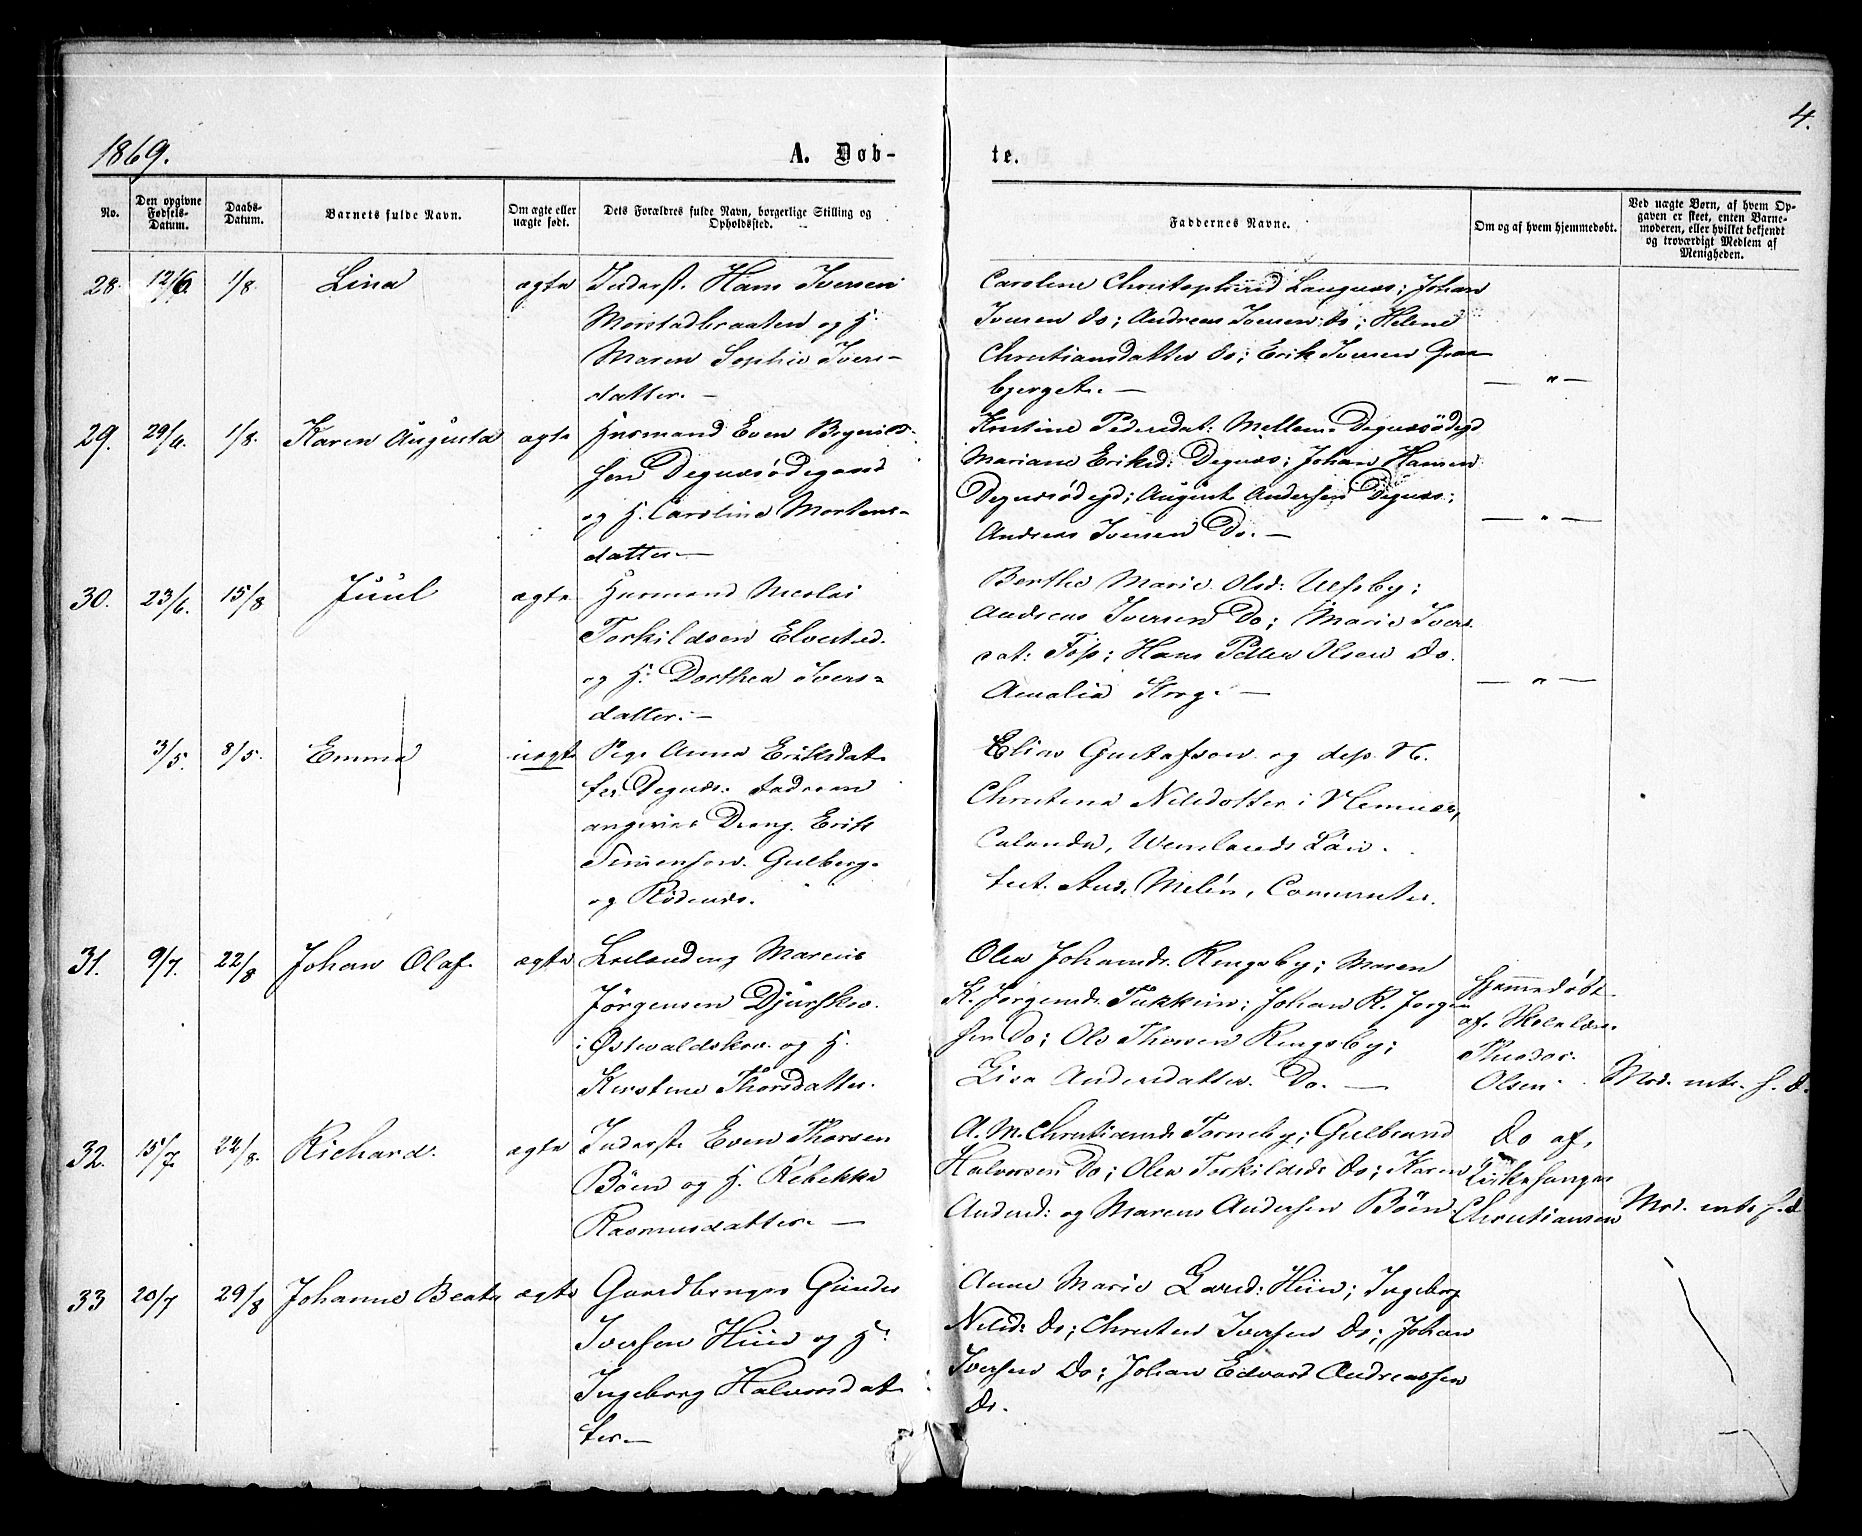 4.
1869.
A. Døb-
te.
No.
Den opgivne Fødsels-Datum.
Daabs-Datum.
Barnets fulde Navn.
Om ægte eller uægte født.
Dets Forældres fulde Navn, borgerlige Stilling og Opholdssted.
Faddernes Navne.
Om og af hvem hjemmedøbt.
Ved uægte Børn, af hvem Opgaven er skeet, enten Barnemoderen, eller hvilket bekjendt og troværdigt Medlem af Menigheden.
28. 12/6. 1/8. Lina ægte
Inderst. Hans Iversen
Morstadbraaten og H.
Maren Sophie Ivers-
datter. —
Caroline Langnæs; Johan
Iversen do; Andreas Iversen do; Helene
Christiansdatter do; Erik Iversen
bjerget. —
— " —
29. 29/6. 1/8. Karen Augusta ægte
Husmand Even
sen Degnæsødegaard
og H. Caroline Mortens-
datter. —
Kristine Pedersdat: Mellem Degnæsødegd
Mariane Eriksd: Degnæs; Johan Hansen
Degnæsødegd; August Andersen Degnæs;
Andreas Iversen Do. —
— " —
30. 23/6. 15/8 Juul ægte
Husmand Nicolai
Torkildsen Elvestad
og H. Dorthea Ivers-
datter. —
Berthe Marie Olsd: Ulfsby;
Andreas Iversen Do; Marie Ivers
dat: Foss; Hans Petter Olsen Do.
Amalia Krog. —
— " —
3/5. 8/5. Emma uægte
Pige Anna Eriksdat
ter Degnæs. Faderen
angives Dreng Erik
Simensen Gulberg
og Rødenæs.
Elias Gustafson og dess H.
Christina Nilsdotter i
Wermlands Län.
And. Melén, Comminister.
31. 9/7. 22/8 Johan Olaf ægte
Leilænding Marcus
Jörgensen Djurskov
i Østvaldskov og H.
Kirstine Thorsdatter.
Olea Johannsd. Kingsby; Maren
K. Jörgensd. Tukkuin; Johan K. Jörgen
sen do; Ole Thorsen Kingsby;
Lisa Andersdatter Do. —
Hjemmedøbt
af Skolelærer
Theodor
Olsen.
Mod. intr. s. d.
32. 15/7. 22/8. Richard. ægte
Inderst Even Thorsen
Böen og H. Rebekka
Rasmusdatter. —
A. M. Christiansd: Torneby; Gulbrand
Halvorsen Do; Olea Torkildsd: do; Karen
Andersd: og Marcus Andersen Böen
Do af
Kirkesanger
Christiansen
Mod. intr. s. d.
33 20/7 29/8 Johanne Beate ægte
Gaardbruger Gunder
Iversen Hiin og H.
Ingeborg Halvorsdat
ter. —
Anne Marie Larsd: Hiin; Ingeborg
Nilsd: do; Christen Iversen do; Johan
Iversen Do; Johan Edvard Andreassen
do.